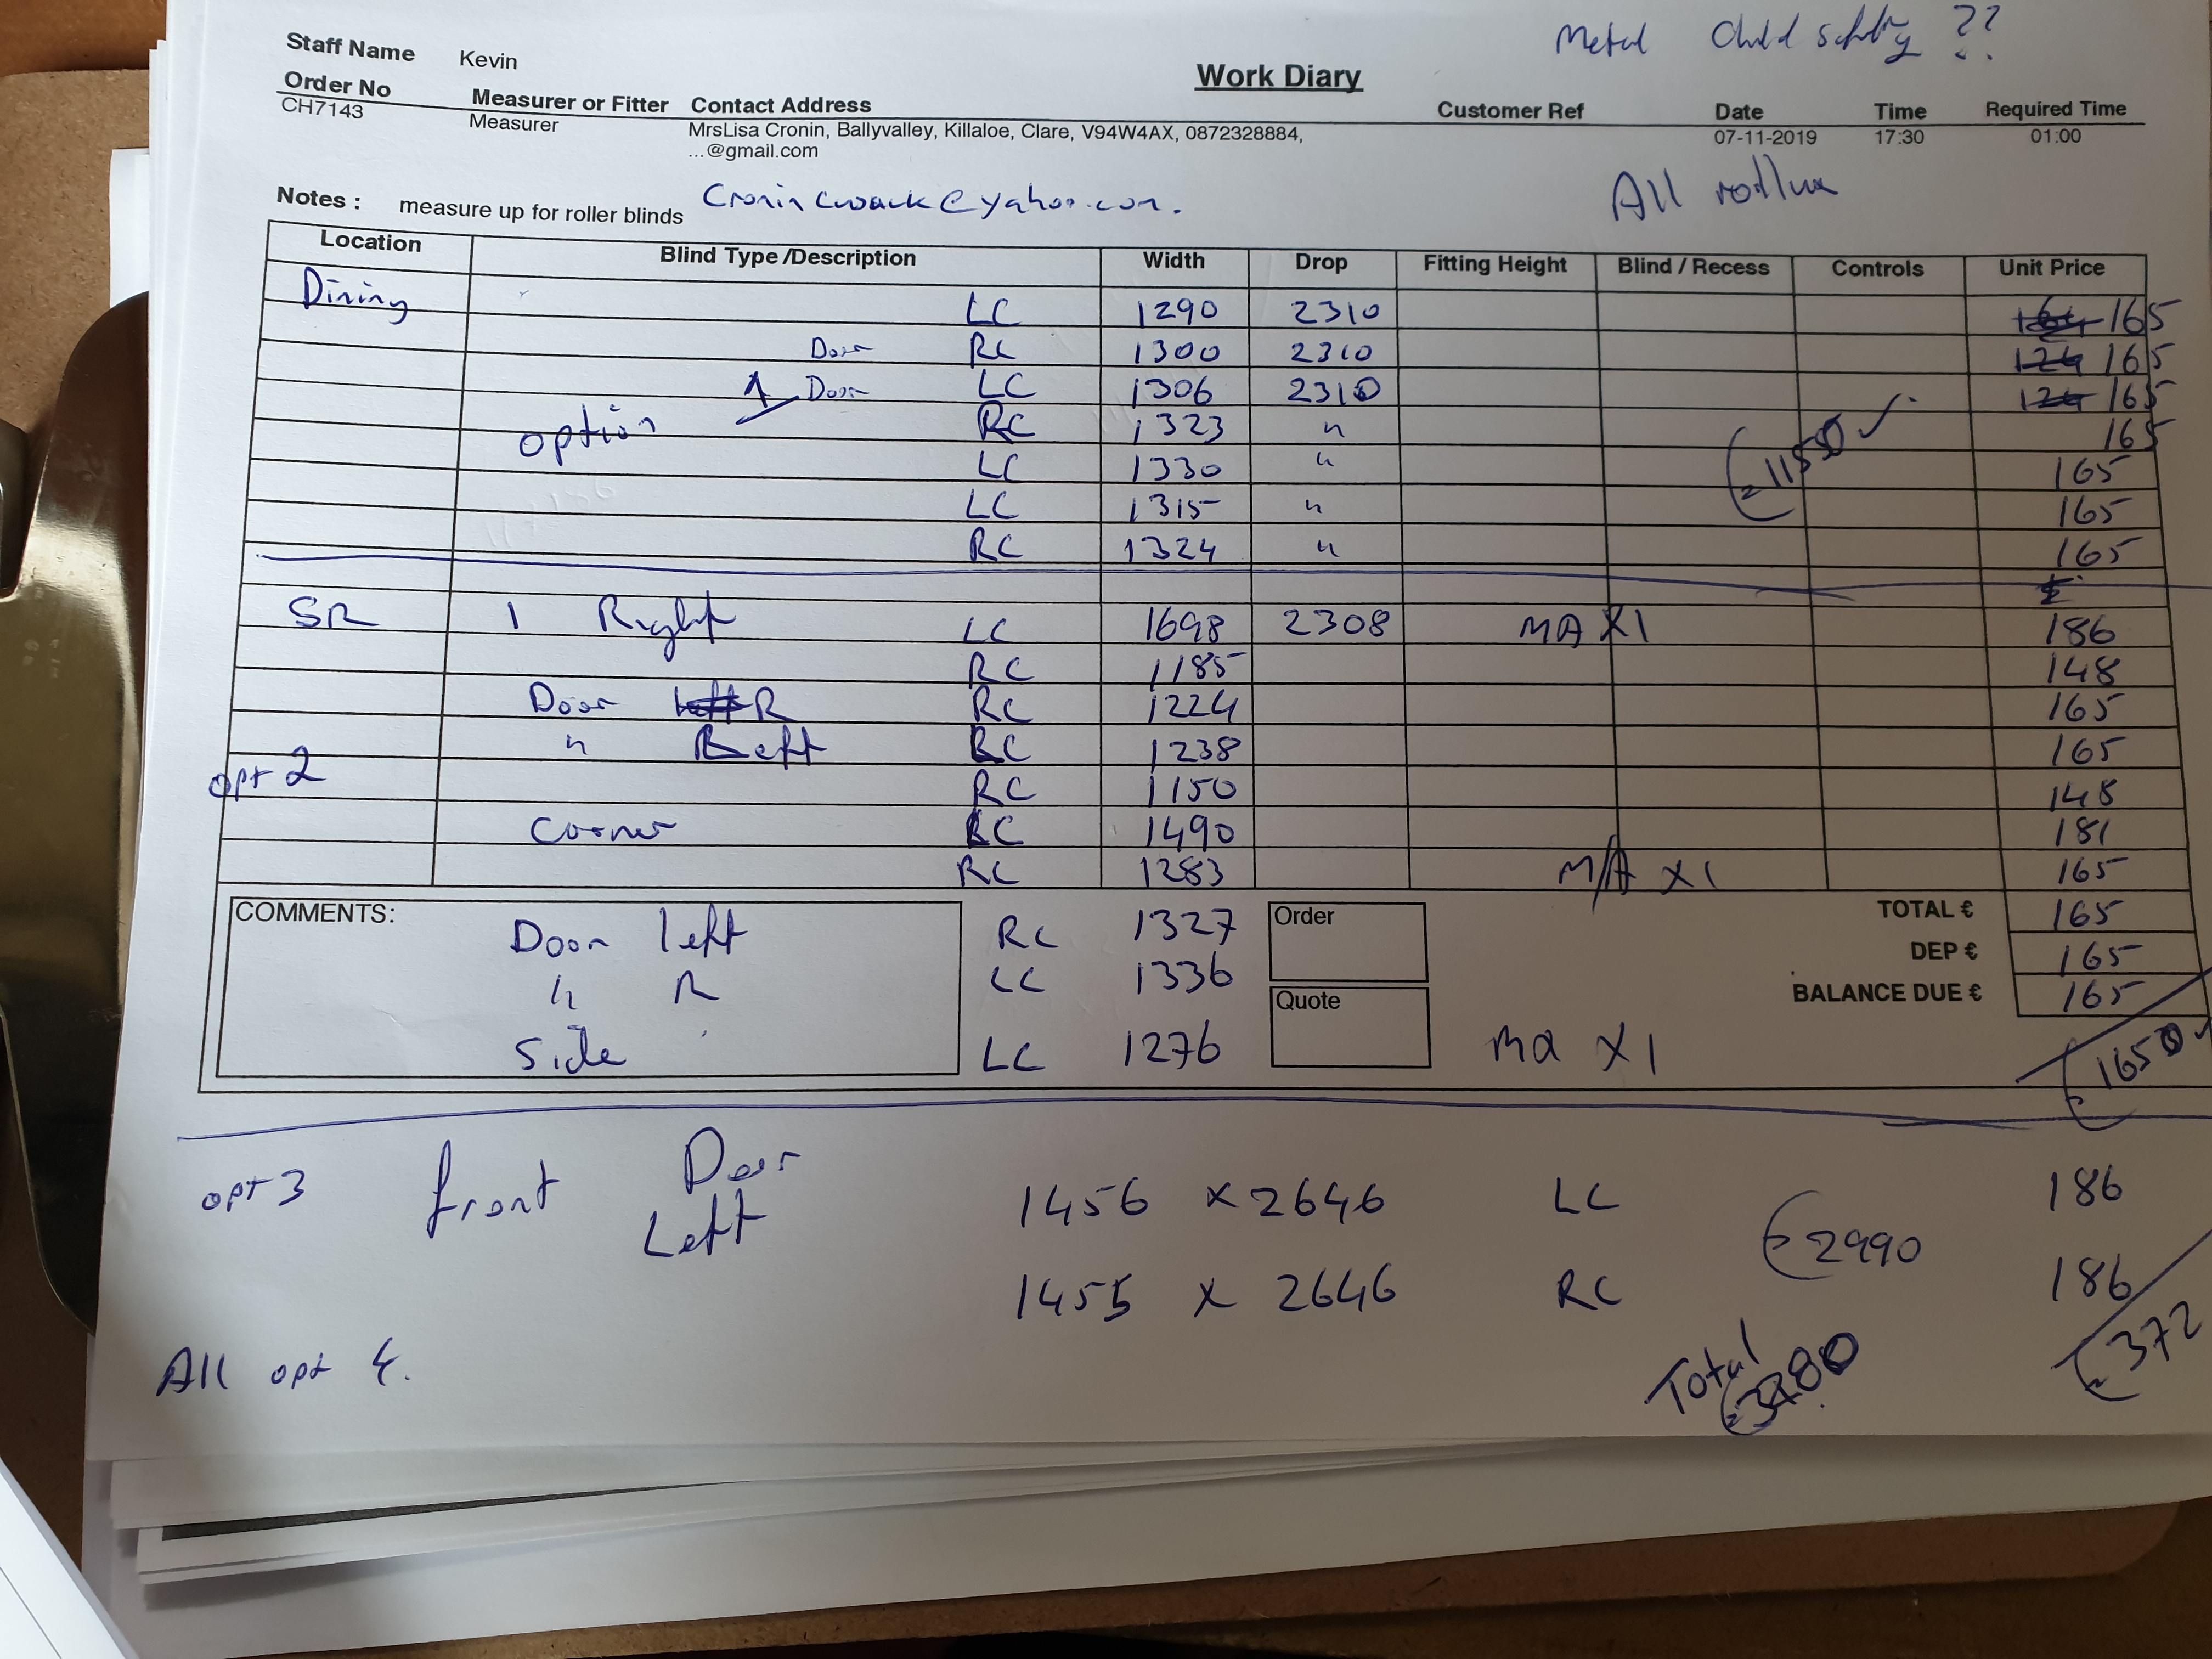 Metal Child safety ??
Staff Name Kevin
Work Diary
Order No Measurer or Fitter Contact Address Customer Ref Date Time Required Time
CH7143 Measurer MrsLisa Cronin, Ballyvalley, Killaloe, Clare, V94W4AX, 0872328884, 07-11-2019 17:30 01:00
...@gmail.com
All
Notes : measure up for roller blinds
Location Blind Type /Description Width Drop Fitting Height Blind / Recess Controls Unit Price
Dining LC 1290 2310 165
Door RC 1300 2310 124 165
1 Door LC 1306 2310 124 165
option RC 1323 " 165
LC 1330 " €1155 165
LC 1315 " 165
RC 1324 " 165
SR 1 Right LC 1698 2308 MA X1 186
RC 1185 148
Door left R RC 1224 165
" Left RC 1238 165
opt 2 RC 1150 148
Corner RC 1490 181
RC 1283 M/A X1 165
COMMENTS: Door left RC 1327 Order TOTAL € 165
" R LC 1336 DEP € 165
Quote BALANCE DUE € 165
Side LC 1276 MA X1
€1650
opt 3 front Door Left 1456 x 2646 LC 186
€2990
1455 x 2646 RC 186
€372
All opt 4. Total